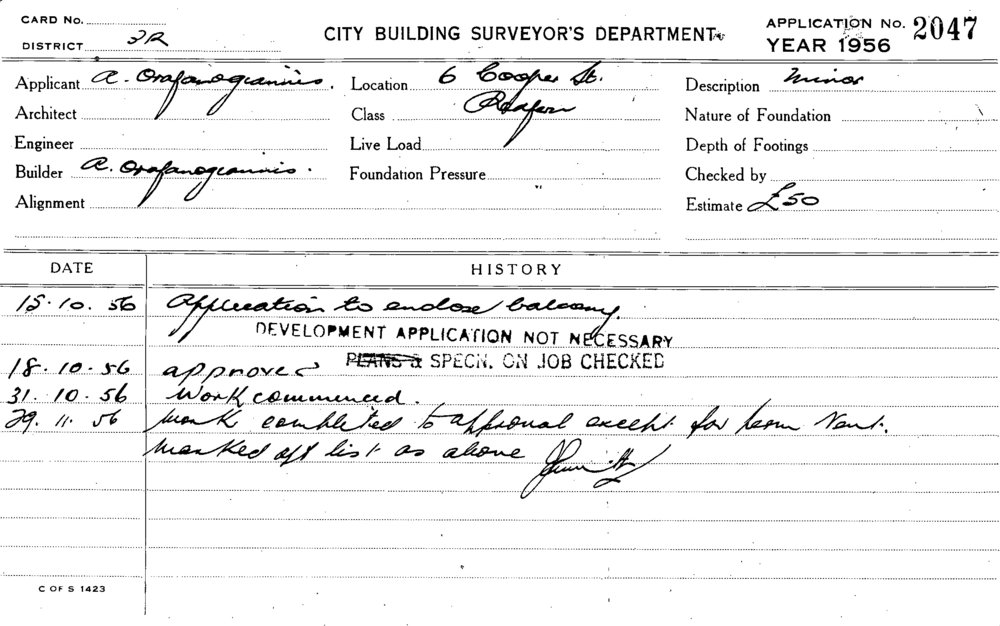 CARD No.
DISTRICT 3R
CITY BUILDING SURVEYOR'S DEPARTMENT
APPLICATION No. 2047
YEAR 1956
Applicant A. Orafanogiannis.
Location 6 Cooper St.
Description Minor
Architect
Class Redfern
Nature of Foundation
Engineer
Live Load
Depth of Footings
Builder A. Orafanogiannis.
Foundation Pressure
Checked by
Alignment
Estimate £50
DATE HISTORY
15.10.56 Application to enclose balcony.
DEVELOPMENT APPLICATION NOT NECESSARY
PLANS & SPECN. ON JOB CHECKED
18.10.56 approved
31.10.56 Work commenced.
29.11.56 work completed to approval except for perm Vent.
marked off list as above
C OF S 1423